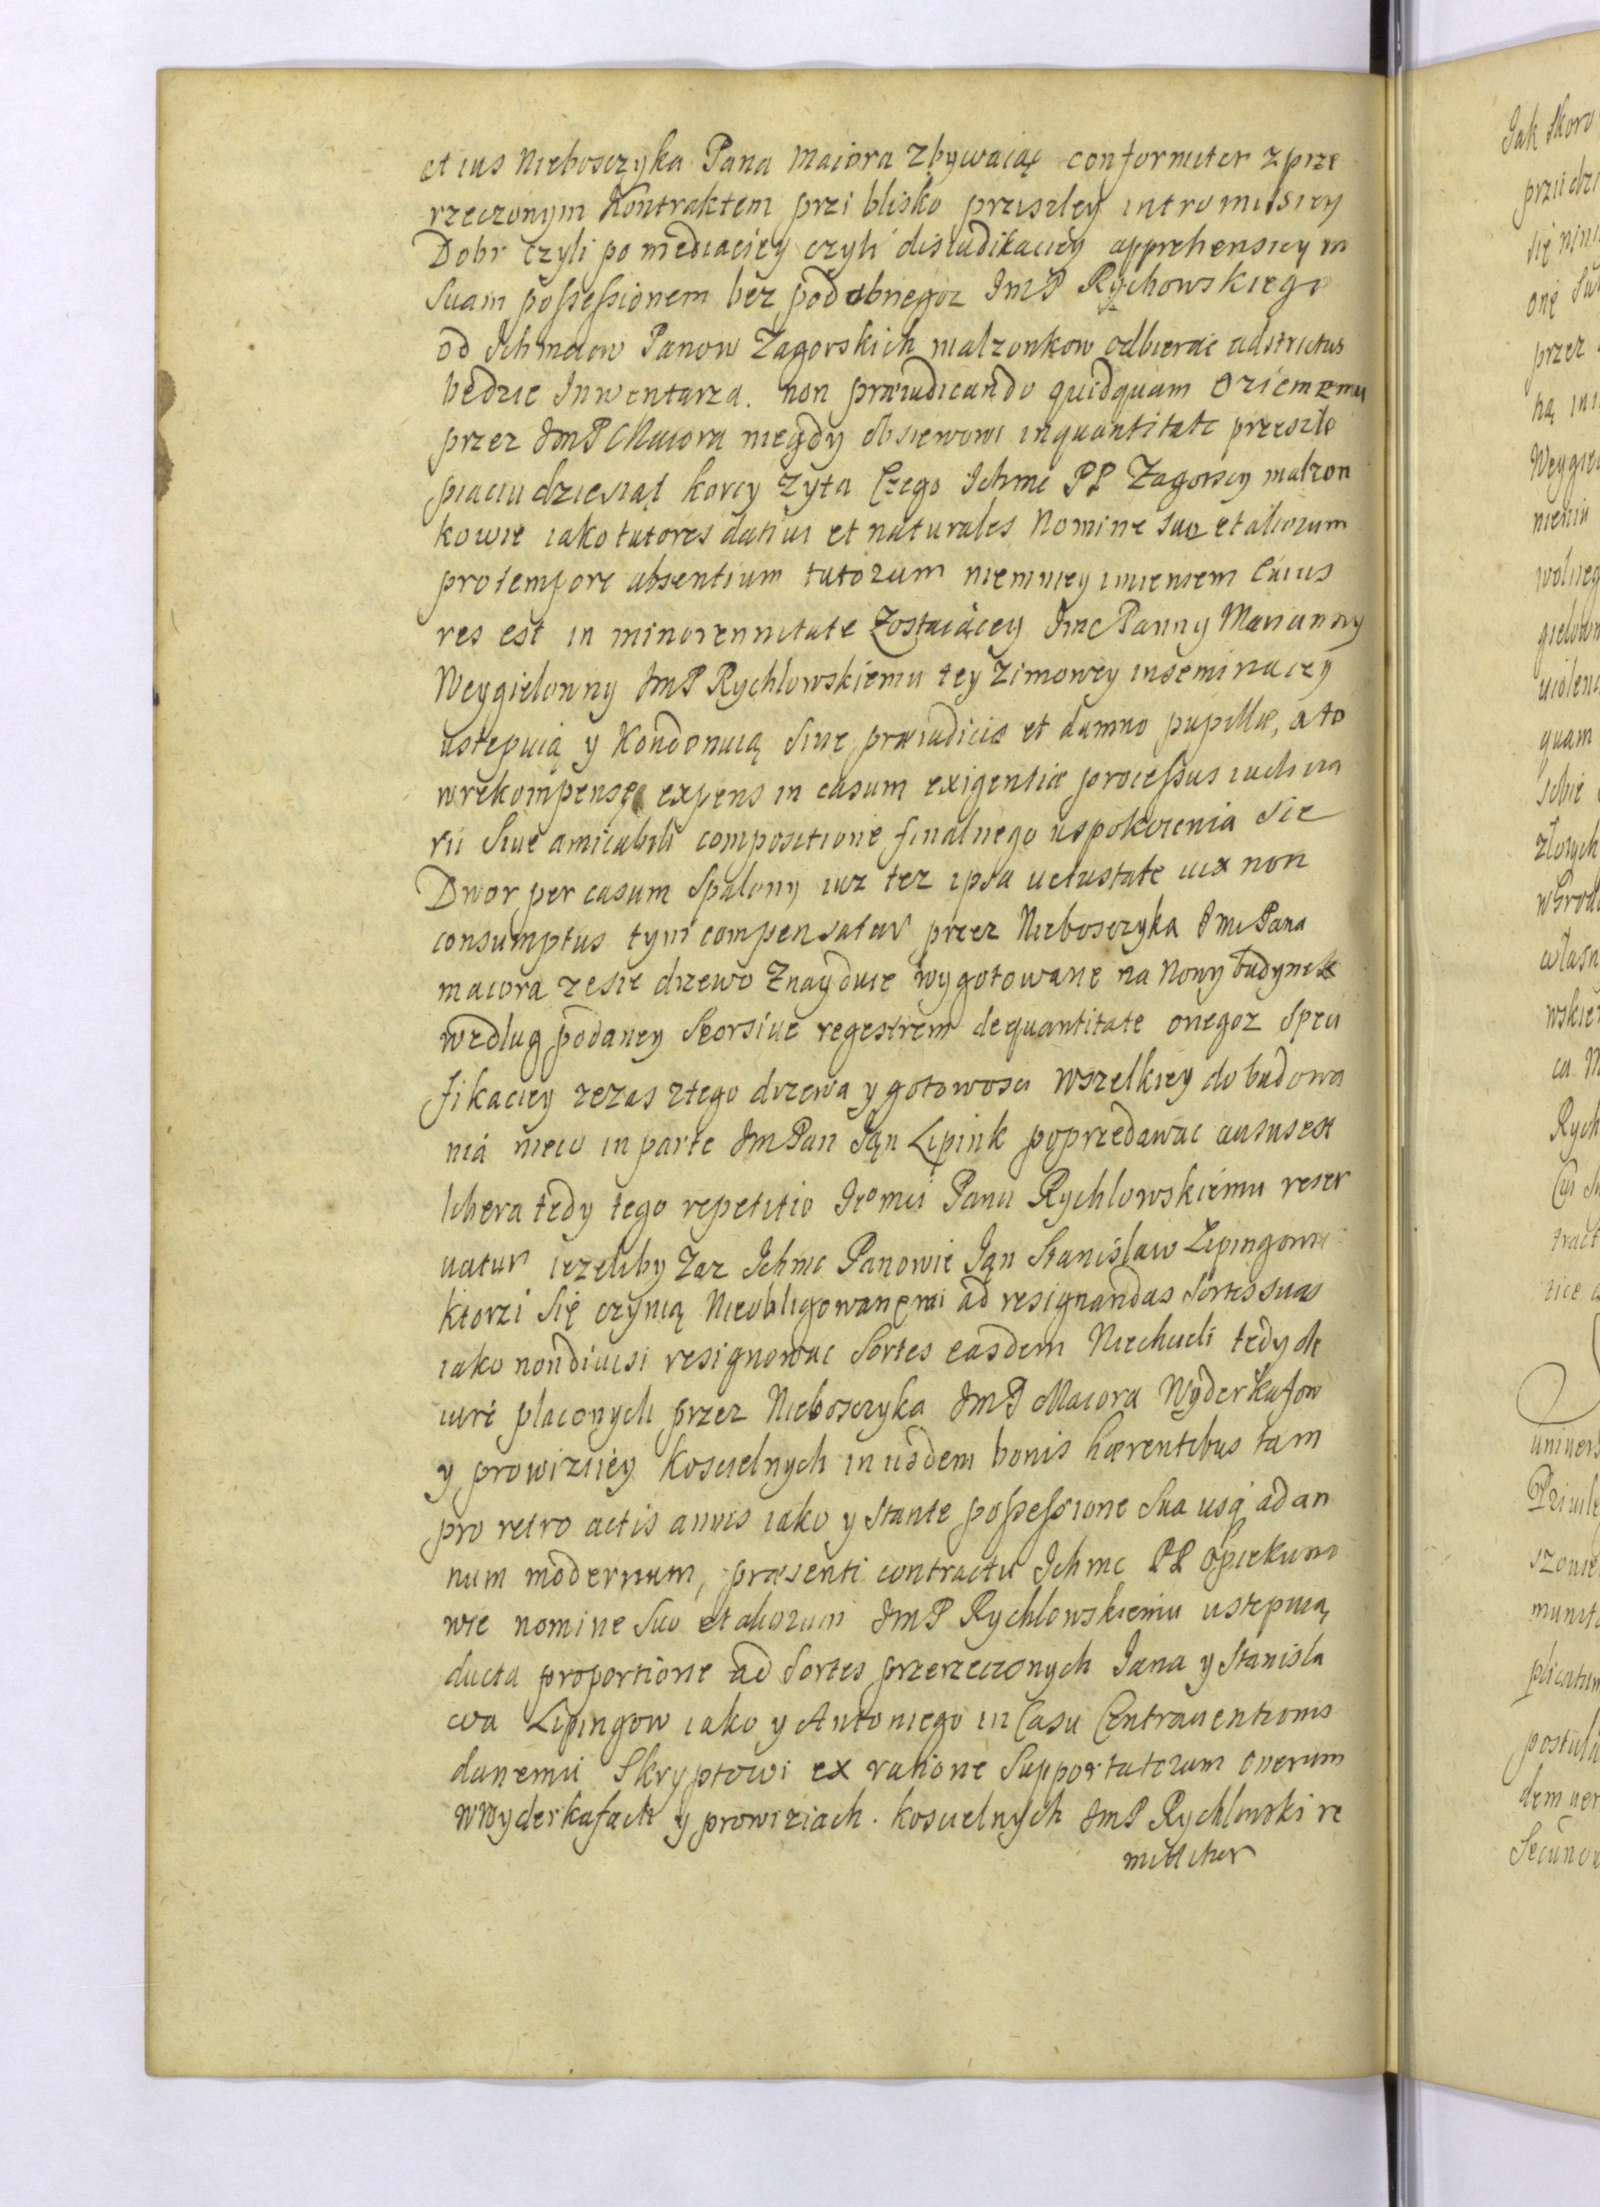 et ius Nieboszyka Pana Maiora zbywaiąc conformiter z prze
rzeczonym Kontraktem przi blisko priszley intromissiey
Dobr czyli po mediaciey czyli disiudikaciey apprehensiey in
Suam possessionem bez podobnegoz JmP Rychowskiego
od Ichmciow Panow Zagorskich malzonkow odbierac adstrictus
bedzie Inwentarza. non præiudicando quidquam oziememu
przez JmP Maiora niegdy obsiewowi in quantitate przeszlo
piaciudziesiąt korcy Zyta Czego Ichmc PP Zagorscy malzon
kowie iako tutores dativi et naturales Nomine suo et aliorum
pro tempore absentium tutorum niemniey imieniem Cuius
res est in minorennitate Zostaiącey JmcPanny Marianny
Weygielowny JmP Rychlowskiemu tey zimowey inseminacyi
ustepuią y Kondonuią Sine præiudicio et damno pupillæ, a to
w rekompensę expens in casum exigentiæ processus iuridicia
rii Sive amicabili compositione finalnego uspokoienia Sie
Dwor per casum Spalony iuz tez ipsa vetustate vix non
consumptus tym compensatur przez Nieboszczyka JmPana
maiora zesie drzewo Znayduie wygotowane na Nowy budynek
wedlug podaney Seorsive regestrem de quantitate onegoz Speci
fikaciey zezas ztego drzewa y gotowosci wszelkiey do budowa
nia nieco in parte Jm Pan Jąn Lipink poprzedawac ausus est
libera tedy tego repetitio Jeomci Panu Rychlowskiemu reser
uatur iezeliby Zaz Ichmc Panowie Jąn Stanislaw Lipingowie
ktorzi Się czynią Nieobligowanemi ad resignandas Sortes suas
iako nondivisi resignowac Sortes easdem Niechcieli tedy de
iure placonych przez Nieboszczyka JmP Maiora Wyderkafow
y prowiziiey koscielnych in iisdem bonis hærentibus tam
pro retro actis annis iako y Stante possessione Sua usq ad an
num modernum, præsenti contractu Ichmc PP Opiekuno
wie nomine Suo et aliorum JmP Rychlowskiemu ustepuią
ducta proportione ad Sortes przerzeczonych Jana y Stanisla
wa Lipingow iako y Antoniego in Casu Contraventionis
danemu Skryptowi ex ratione Supportatorum onerum
w wyderkafach y prowiziach. koscielnych JmP Rychlowski re
mittitur